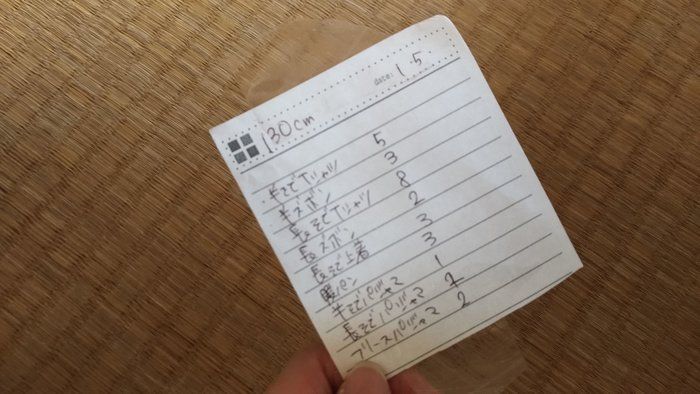 date: 1.5
130cm
・半そでTシャツ 5
半ズボン 3
長そでTシャツ 8
長ズボン 2
長そで上着 3
暖パン 3
半そでパジャマ 1
長そでパジャマ 7
フリースパジャマ 2